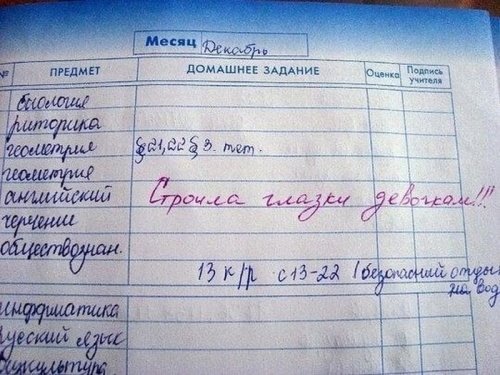 Месяц Декабрь
№ ПРЕДМЕТ ДОМАШНЕЕ ЗАДАНИЕ Оценка Подпись учителя
биология
риторика
геометрия §21,22 § 3. тет.
геометрия
английский Строила глазки девочкам!!!
черчение
обществознан.
13 к/р с 13-22 / безопасный отдых
на вод
информатика
русский язык
физкультура